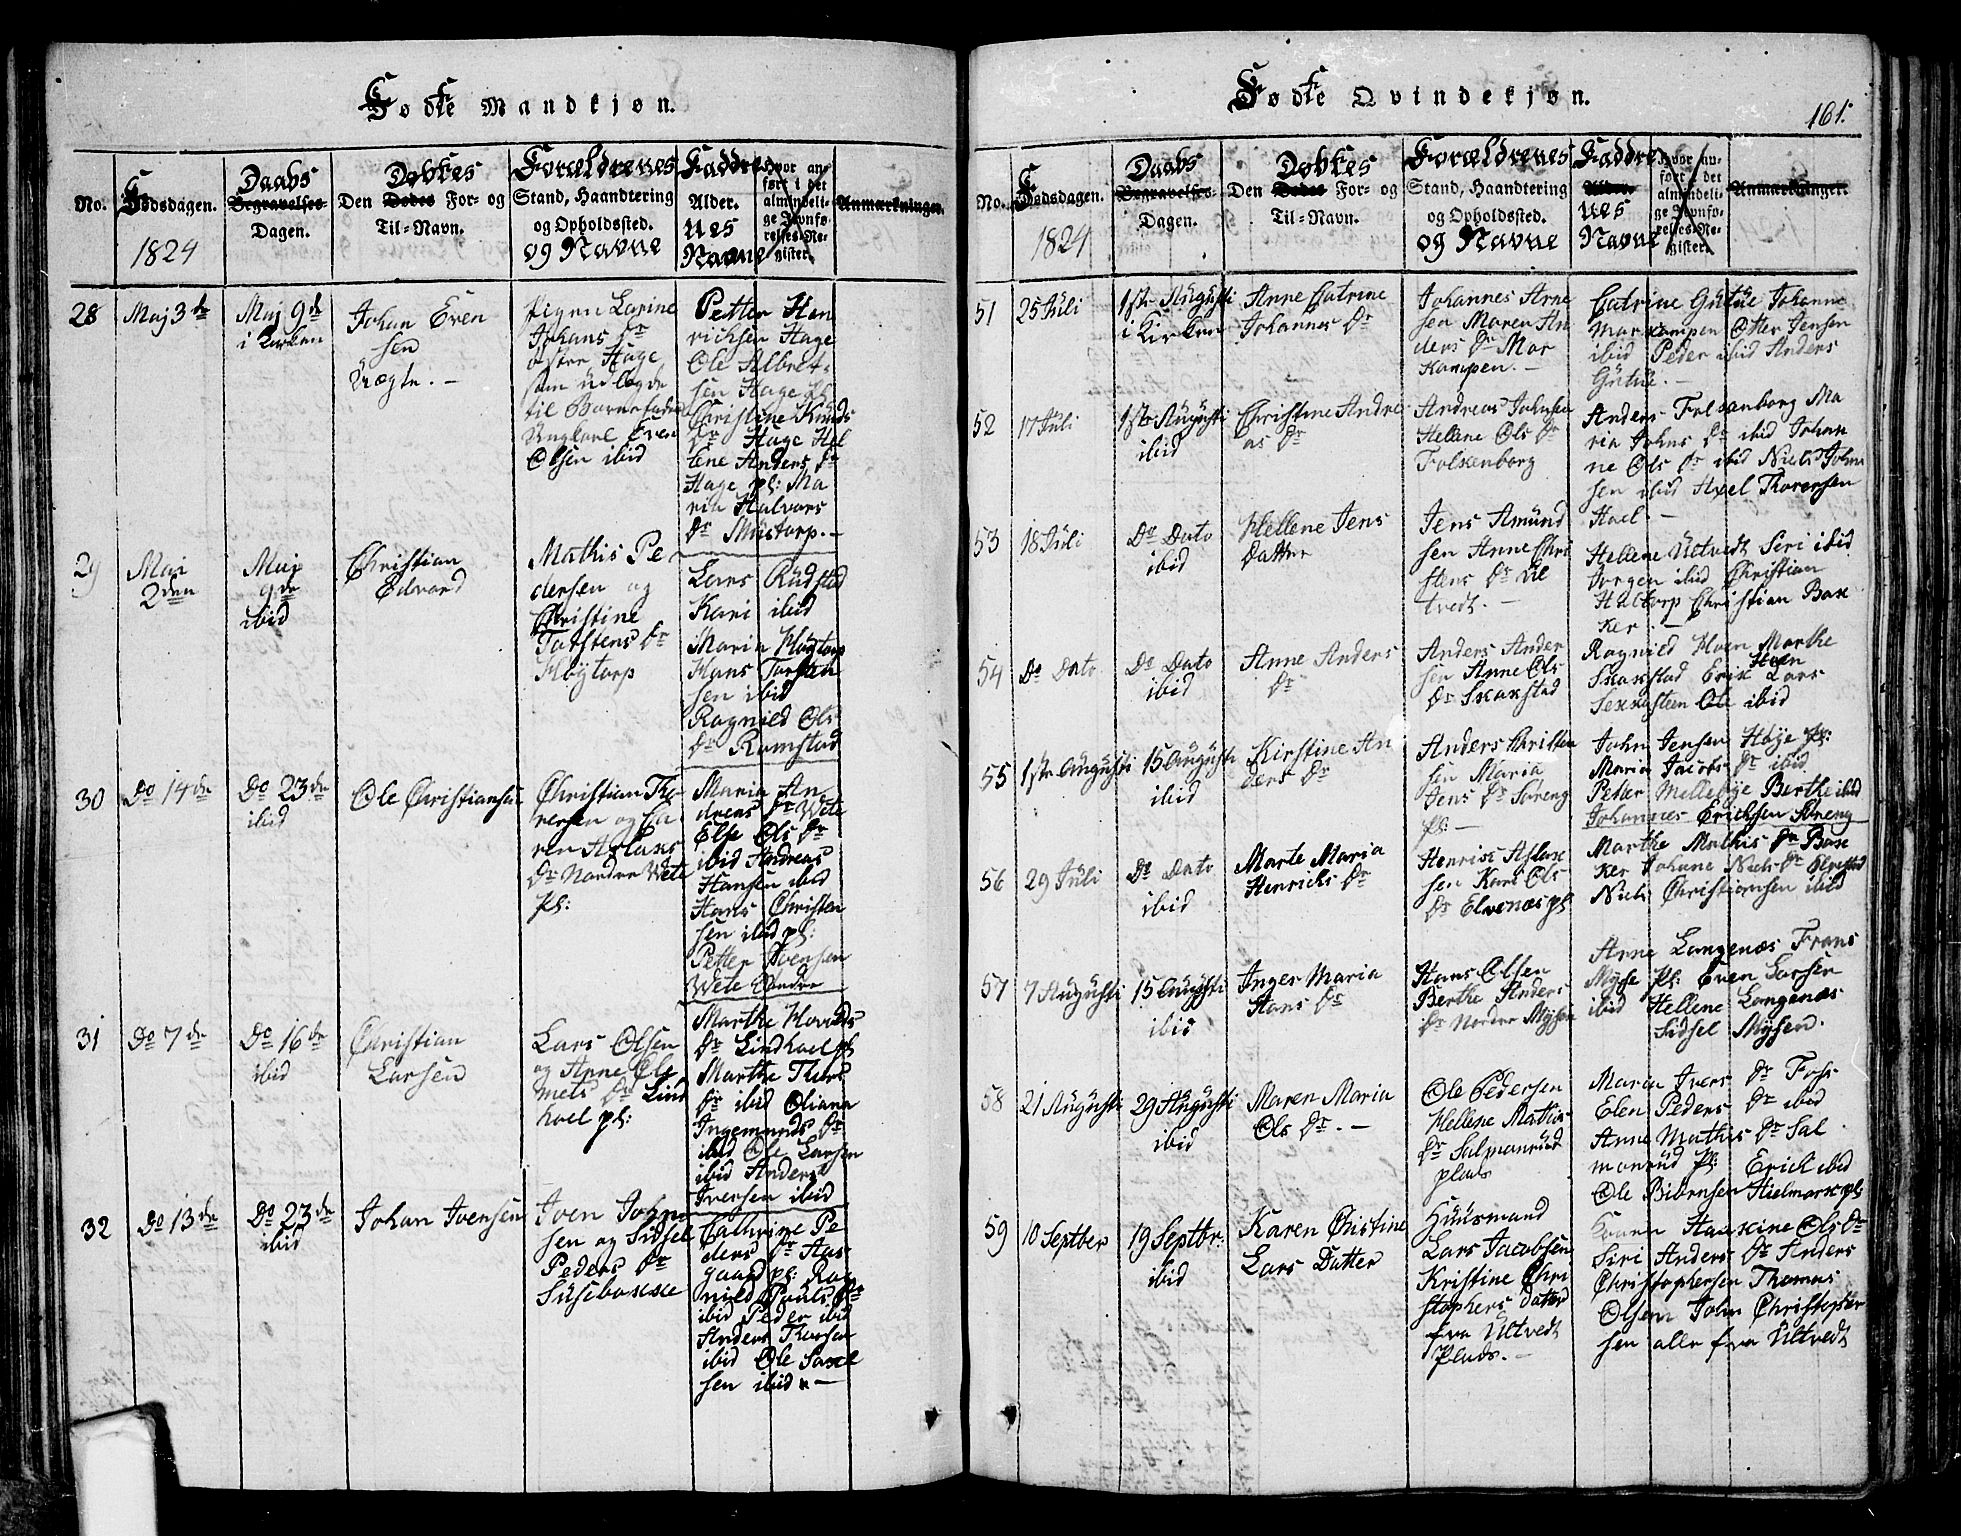 Fødte Mandkjøn.
No.
Fødsdagen.
1824
Daabs
Begravelses-
Dagen.
Døbtes
Den Dødes For- og
Til-Navn.
Forældrenes
Stand, Haandtering
og Opholdssted.
og Navne
Faddre
Alder.
nes
Navne
Hvor an-
ført i det
almindeli-
ge Jevnfø-
relses-Re-
gister.
Anmærkninger.
28
Maj 3de
Maj 9de
i Kirken
Johan Even
sen
Uægte. –
Pigen Larine
Johans Dr
østre Hage
som udlagde
til Barnefader
Ungkarl Even
Olsen ibid
Petter Hen
richsen Hage
Ole Albret-
sen Hage pl:
Christine Knuds
Dr Hage Hel
ene Anders Dr
Hage pl: Ma
ria Halvors
Dr Mustorp. –
29
Mai
2den
Mai
9de
ibid
Christian
Edvard
Mathis Pe
dersen og
Christine
Torstens Dr
Høytorp
Lars Rudstad
Kari ibid
Maria Høytorp
Hans Torsten
sen ibid
Ragnild Ols
Dr Ramstad
30
Do 14de
Do 23de
ibid
Ole Christiansen
Christian Tho-
resen og Ka
ren Aslaks
Dr Nordre Wete
pl:
Maria An
dreas Dr Wete
Else Ols Dr
ibid Andreas
Hansen ibid
Hans Christen
sen ibid pl:
Petter Svensen
Wete Søndre
31
Do 7de
Do 16de
ibid
Christian
Larsen
Lars Olsen
og Anne Cle
mets Dr Lind
hoel pl:
Marthe Hovalds
Dr Lindhoel pl
Marthe Thors
Dr ibid Oliana
Ingemunds Dr
ibid Ole Larsen
ibid Anders
Iversen ibid
32
Do 13de
Do 23de
ibid
Johan Ivensen
Iven John
sen og Sidsel
Peders Dr
Susebakke
Cathrine Pe
ders Dr Aas
gaard pl: Rag
nild Pouls Dr
ibid Peder ibid
Anders Thorsen
ibid Ole Saxel
sen ibid –
Fødte Qvindekjøn.
161.
No.
Fødsdagen.
1824
Daabs
Begravelses-
Dagen.
Døbtes
Den Dødes For- og
Til-Navn.
Forældrenes
Stand, Haandtering
og Opholdssted.
og Navne
Faddre
Alder.
nes
Navne
Hvor an-
ført i det
almindeli-
ge Jevnfø-
relses-Re-
gister.
Anmærkninger.
51
25 Juli
1ste Augusti
i Kirken
Anne Catrine
Johannes Dr
Johannes Arne
sen Maren An
ders Dr Mor
kampen. –
Catrine Gutue Johanne
Morkampen Otter Jensen
ibid Peder ibid Anders
Gutue. –
52
17 Juli
1ste Augusti
ibid
Christine Andre
as Dr
Andreas Johnsen
Hellene Ols Dr
Folkenborg
Anders Folkenborg Ma
ria Johns Dr ibid Johan
ne Ols Dr ibid Niels John
sen ibid Axel Thoresen
Hoel. –
53
18 Juli
Do Dato
ibid
Hellene Jens
Datter
Jens Amund
sen Anne Chri
stens Dr Ul
tvedt. –
Hellene Ultvedt Siri ibid
Jørgen ibid Christian
Haltorp Christian Bak
ker. –
54
Do Dato
Do Dato
ibid
Anne Anders
Dr
Anders Ander
sen Anne Ols
Dr Skakstad
Ragnild Hoen Marthe
Skakstad Erik Hoen Lars
Sekkesteen Ole ibid
55
1ste Augusti
15 Augusti
ibid
Kirstine An
ders Dr
Anders Christen
sen Maria
Jens Dr Streng
pl: –
John Jensen Høje pl:
Maria Jacobs Dr ibid
Peder Melleby e Berthe ibid
Johannes Ericksen Streng
56
29 Juli
Do Dato
ibid
Marte Maria
Henricks Dr
Henrik Aslak
sen Kari Ols
Dr Elvenæs pl
Marthe Mathis Dr Bak
ker Johane Niels Dr
Niels Christiansen ibid
57
7 Augusti
15 Augusti
ibid
Inger Maria
Hans Dr
Hans Olsen
Berthe Anders
Dr Nordre Mysen
Anne Langenæs Frans
Myse pl: Even Larsen
ibid Hellene Langenæs
Sidsel Mysen.
58
21 Augusti
29 Augusti
ibid
Maren Maria
Ols Dr. –
Ole Pedersen
Hellene Mathis
Dr Salmonrud
plads
Maria Ivers Dr Foss
Elen Peders Dr ibid
Anne Mathis Dr Sal
monrud pl: Erick ibid
Ole Biørnsen Hielmark pl:
59
10 Septber
19 Septbr:
ibid
Karen Christine
Lars Datter
Huusmand
Lars Jacobsen
Kristine Chri
stophers Dater
fra Ultvedt
Plads. –
Karen Haakine Ols Dr
Siri Anders Dr Anders
Christophersen Thomas
Olsen John Christopher
sen alle fra Ultvedt